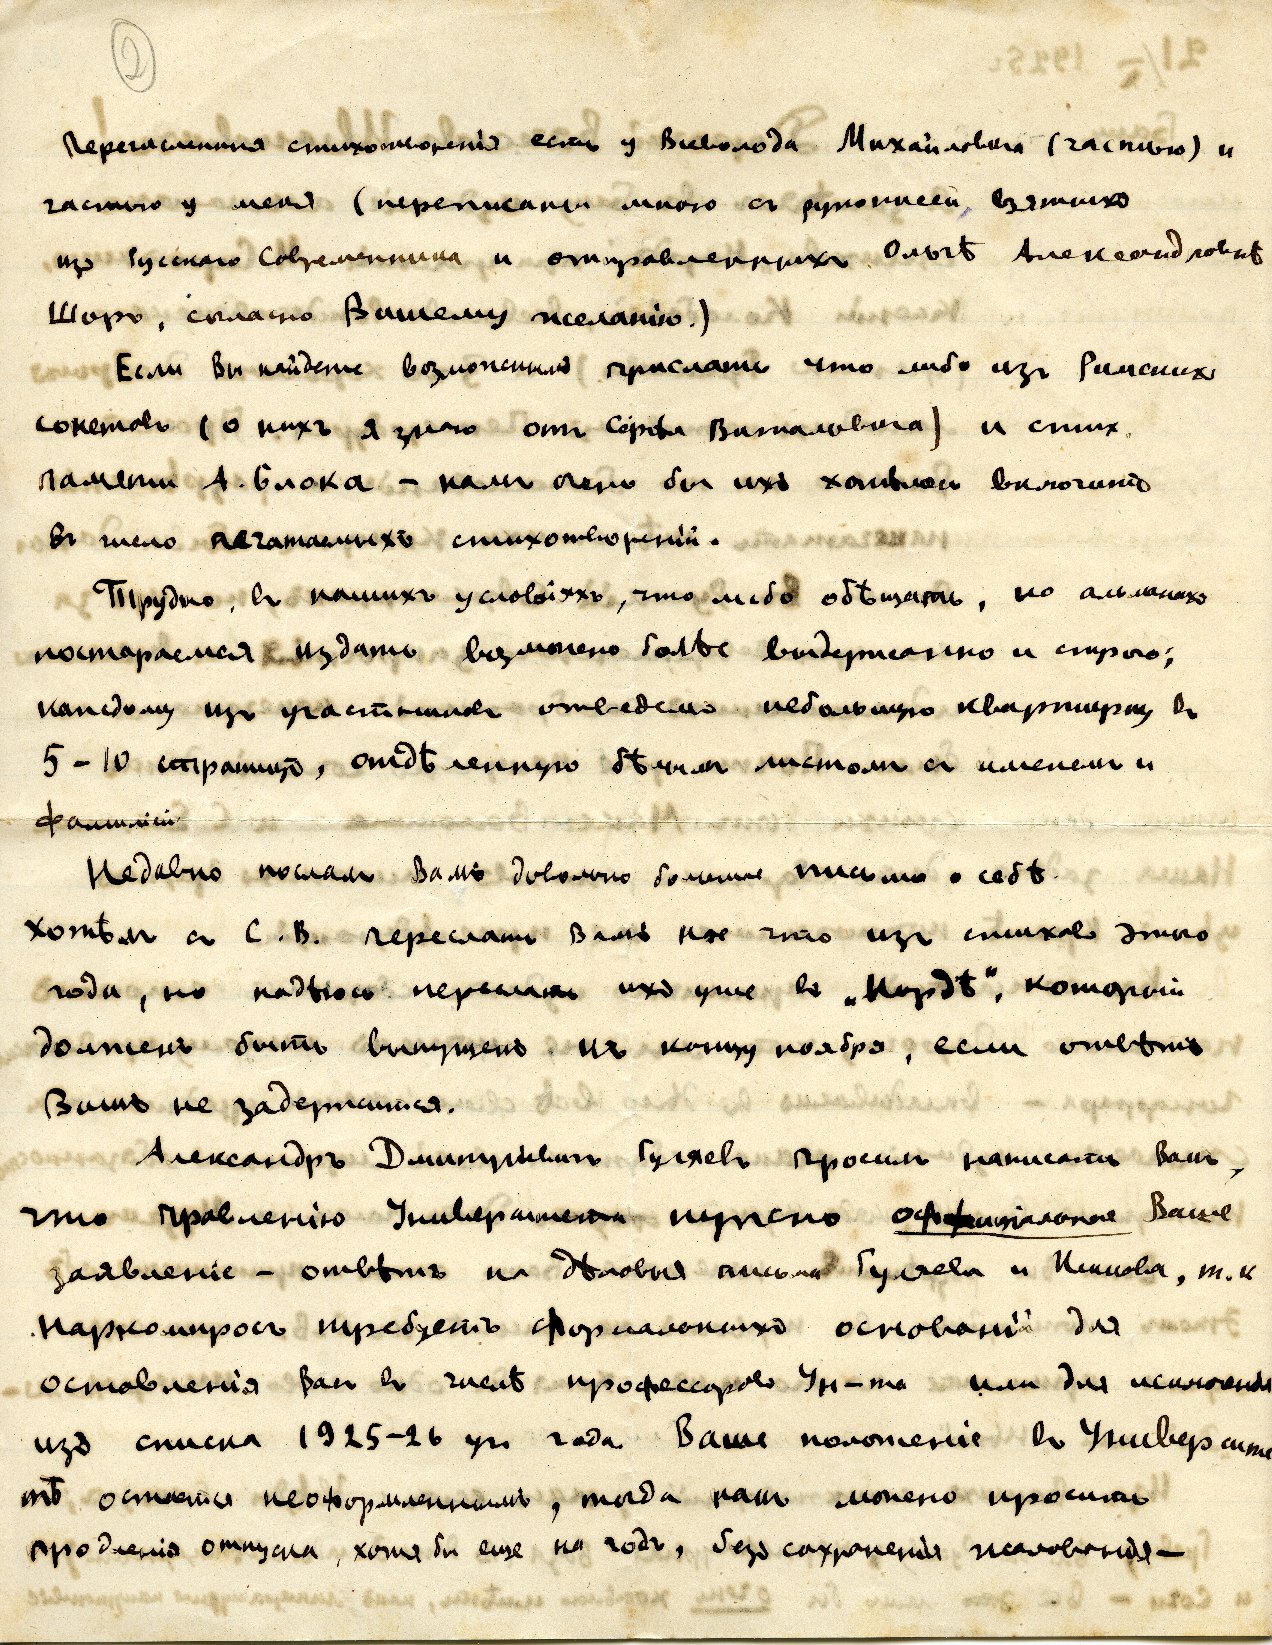 2
Перечисленныя стихотворенія есть у Всеволода Михайловича (частью) и
частью у меня (переписаны мною съ рукописей, взятыхъ
изъ Русскаго Современника и отправленныхъ Ольгѣ Александровнѣ
Шоръ, согласно Вашему желанію.)
Если Вы найдете возможнымъ прислать что либо изъ Римскихъ
сонетовъ (о нихъ я знаю отъ Сергѣя Витальевича) и стих.
памяти А. Блока – намъ очень бы ихъ хотѣлось включить
въ число печатаемыхъ стихотвореній.
Трудно, въ нашихъ условіяхъ, что либо обѣщать, но альманахъ
постараемся издать возможно болѣе выдержанно и строго;
каждому изъ участниковъ отведемъ небольшую квартирку въ
5–10 страницъ, отдѣленную бѣлымъ листомъ съ именемъ и
фамиліей
Недавно послалъ Вамъ довольно большое письмо о себѣ.
Хотѣлъ съ С.В. переслать Вамъ кое что изъ стиховъ этого
года, но надѣюсь переслать ихъ уже въ „Нордѣ“, который
долженъ быть выпущенъ къ концу ноября, если отвѣтъ
Вашъ не задержится.
Александръ Дмитріевичъ Гуляевъ просилъ написать Вамъ,
что правленію Университета нужно оффиціальное Ваше
заявленіе – отвѣтъ на дѣловыя письма Гуляева и , т.к
Наркомпросъ требуетъ формальныхъ основаній для
оставленія Васъ въ числѣ профессоровъ Ун–та или для исключенія
изъ списка 1925–26 уч. года. Ваше положеніе въ Университе
тѣ остается неоформленнымъ, тогда какъ можно просить
продленія отпуска, хотя бы еще на годъ, безъ сохраненія жалованія –